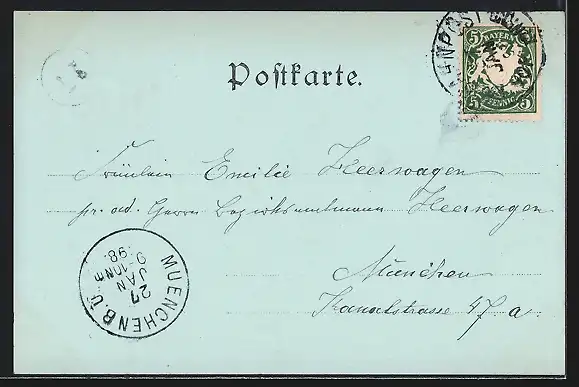 BAYERN
5 5
PFENNIG
JAN
Postkarte.
Fräulein Emilie Heerwagen
pr. ad. Herrn Bezirksamtmann Heerwagen
München
Kanalstrasse 47. a.
MUENCHEN B.Ü.
27
JAN
9-10 NM
98.